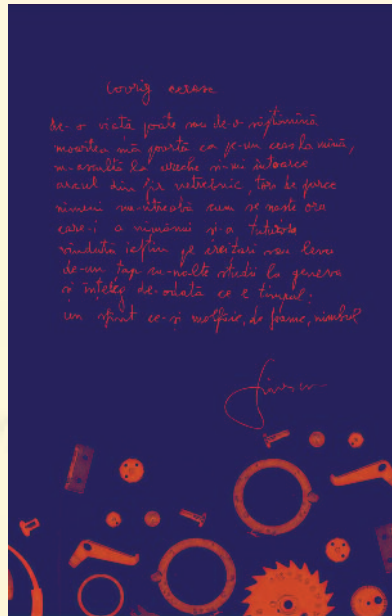 covrig ceresc
de-o viață poate sau de-o săptămînă
moartea mă poartă ca pe-un ceas la mînă,
m-ascultă la ureche și-mi întoarce
arcul din fir netrebnic, tors de parce
nimeni nu-ntreabă cum se naște ora
care-i a nimănui și-a tuturora
vîndută ieftin pe arginți sau leva
de-un țap cu-nalte studii la geneva
și înțeleg de-odată ce e timpul:
un sfînt ce-și molfăie, de foame, nimbul